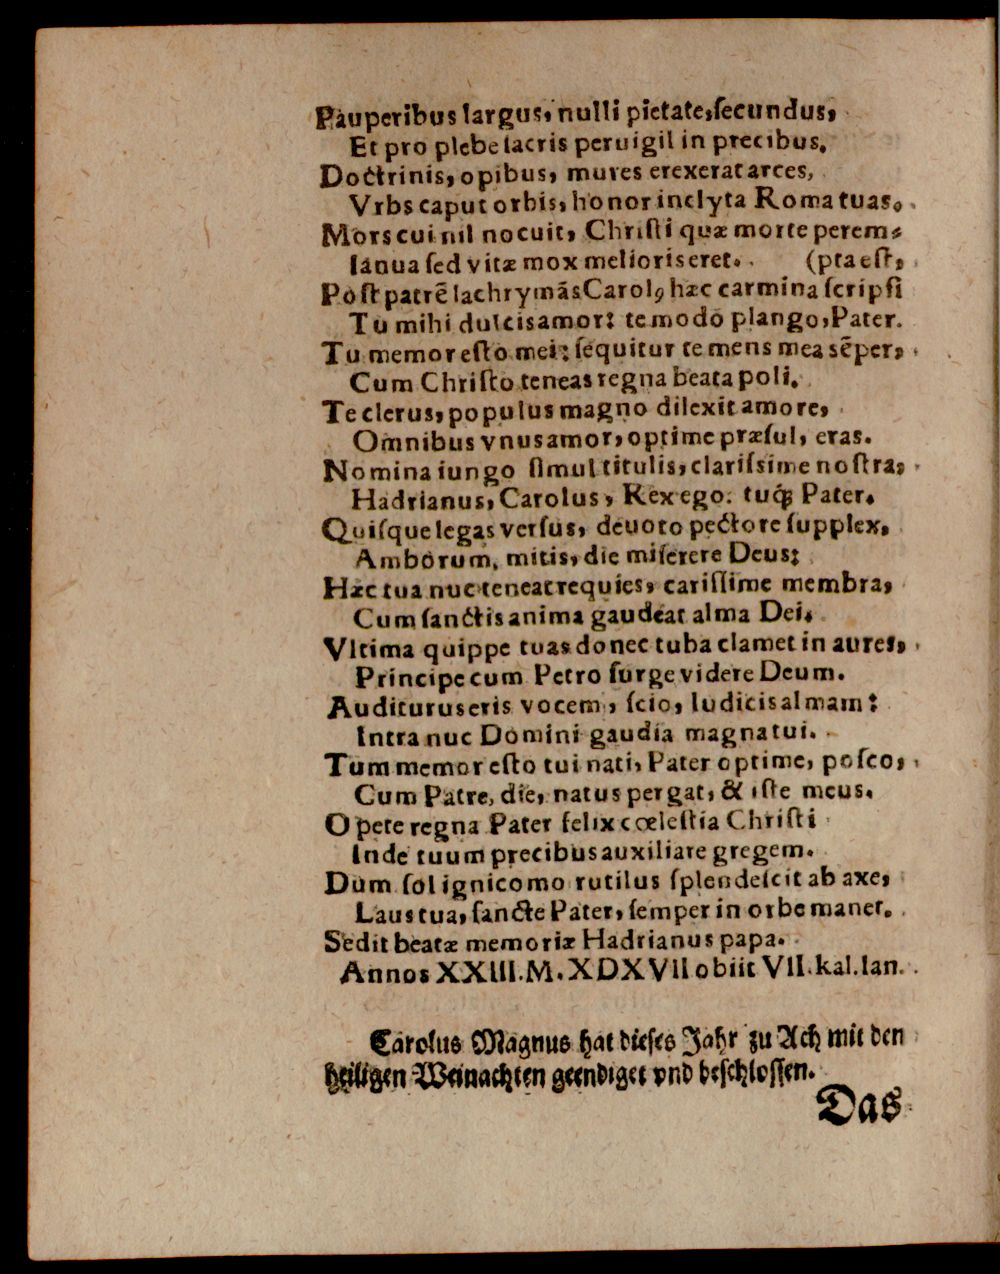 Pauperibus largus, nulli pietate, ſecundus,
Et pro plebe lacris peruigil in precibus.
Doctrinis, opibus, mures erexerat arces,
Vrbs caput orbis, honor inclyta Roma tuas.
Mors cui nil nocuit, Chriſti quæ morte perem-
Ianua ſed vitæ mox melioris eret. (pta eſt,
Poſt patrẽ lachrymãs Carolꝰ hæc carmina ſcripſi
Tu mihi dulcis amor: te modo plango, Pater.
Tu memor eſto mei: ſequitur te mens mea sẽper,
Cum Chriſto teneas regna beata poli.
Te clerus, populus magno dilexit amore,
Omnibus vnus amor, optime præſul, eras.
Nomina iungo ſimul titulis, clariſsime noſtra,
Hadrianus, Carolus, Rex ego. tuq́; Pater.
Quiſque legas verſus, devoto pectore ſupplex,
Amborum, mitis, die miſerere Deus:
Hæc tua nuc teneat requies, cariſſime membra,
Cum ſanctis anima gaudeat alma Dei.
Vltima quippe tuas donec tuba clamet in aures,
Principe cum Petro ſurge videre Deum.
Auditurus eris vocem, ſcio, Iudicis almam:
Intra nuc Domini gaudia magna tui.
Tum memor eſto tui nati, Pater optime, poſco,
Cum Patre, die, natus pergat, & iſte meus.
O pete regna Pater felix cœleſtia Chriſti
Inde tuum precibus auxiliare gregem.
Dum ſol ignicomo rutilus ſplendeſcit ab axe,
Laus tua, ſancte Pater, ſemper in orbe manet.
Sedit beatæ memoriæ Hadrianus papa.
Annos XXIII. M. XDXVII obiit VII. kal. Ian.
Carolus Magnus hat dieſes Jahr zu Ach mit den
heiligen Weinachten geendiget vnd beſchloſſen.
Das